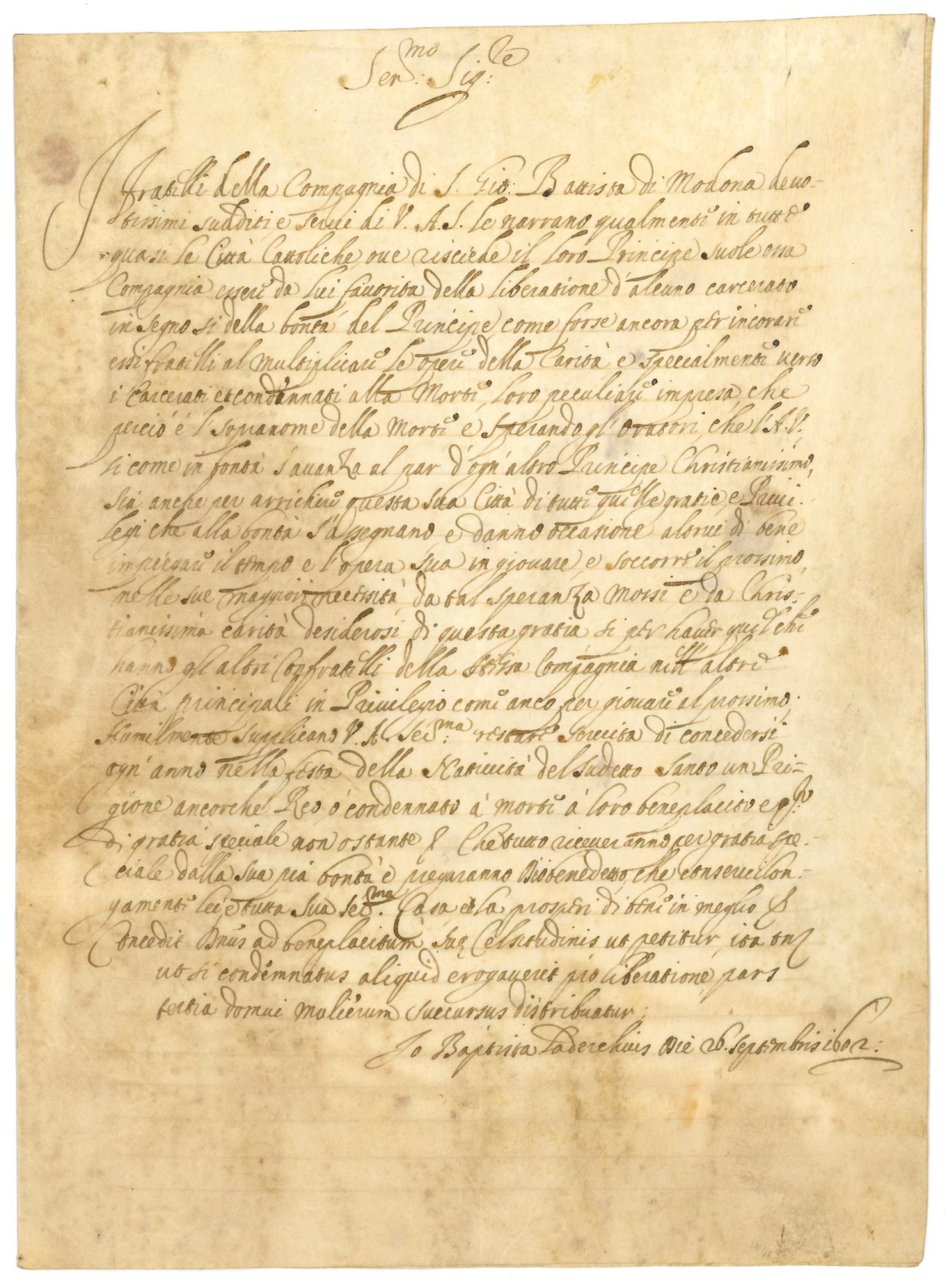 Ser.mo Sig.re
I fratelli della Compagnia di S. Gio: Battista di Modona devo-
tissimi sudditi e servi di V. A. S. le narrano qualmente in tutte
quasi le Città Cattoliche ove risciede il loro Principe suole essa
Compagnia essere da lui favorita della liberatione d'alcuno carcerato
in segno sì della bontà del Principe come forse ancora per incorare
essi fratelli al multiplicare le opere della Carità e specialmente verso
i Carcerati et condannati alla Morte, loro peculiare impresa, che
perciò è il sopranome della Morte e sperando gl'oratori, che l'A.V.
si come in bontà s'avanza al par d'ogn'altro Principe Christianissimo,
sia anche per arrichire questa sua Città di tutte quelle gratie e Privi-
legi che alla bontà s'assegnano e danno occasione altrui di bene
impiegare il tempo e l'opera sua in giovare, e soccorrere il prossimo,
nelle sue maggiori necessità da tal speranza mossi e da Chris-
tianissima carità desiderosi di questa gratia sì per haver quel che
hanno gli altri Confratelli della stessa Compagnia nell'altre
Città principali in Privilegio come anco per giovare al prossimo.
Humilmente supplicano V. A. Ser.ma restare servita di concedersi
ogn'anno nella festa della Natività del sudetto Santo un Pri-
gione ancorche Reo ò condennato à morte à loro beneplacito e
di gratia speciale non ostante Che tutto riceveranno per gratia spe-
ciale dalla sua pia bontà è pregaranno Dio benedetto che conservi lon-
gamente lei e tutta sua Ser.ma Casa e la prosperi di bene in meglio
Concedit Dnus ad beneplacitum suę Celsitudinis ut petitur, ita tn
ut si condemnatus aliquid erogaverit pro liberatione, pars
tertia domui mulierum succursus distribuatur.
Jo Baptista Laderchius Die 26 Septembris 1602.